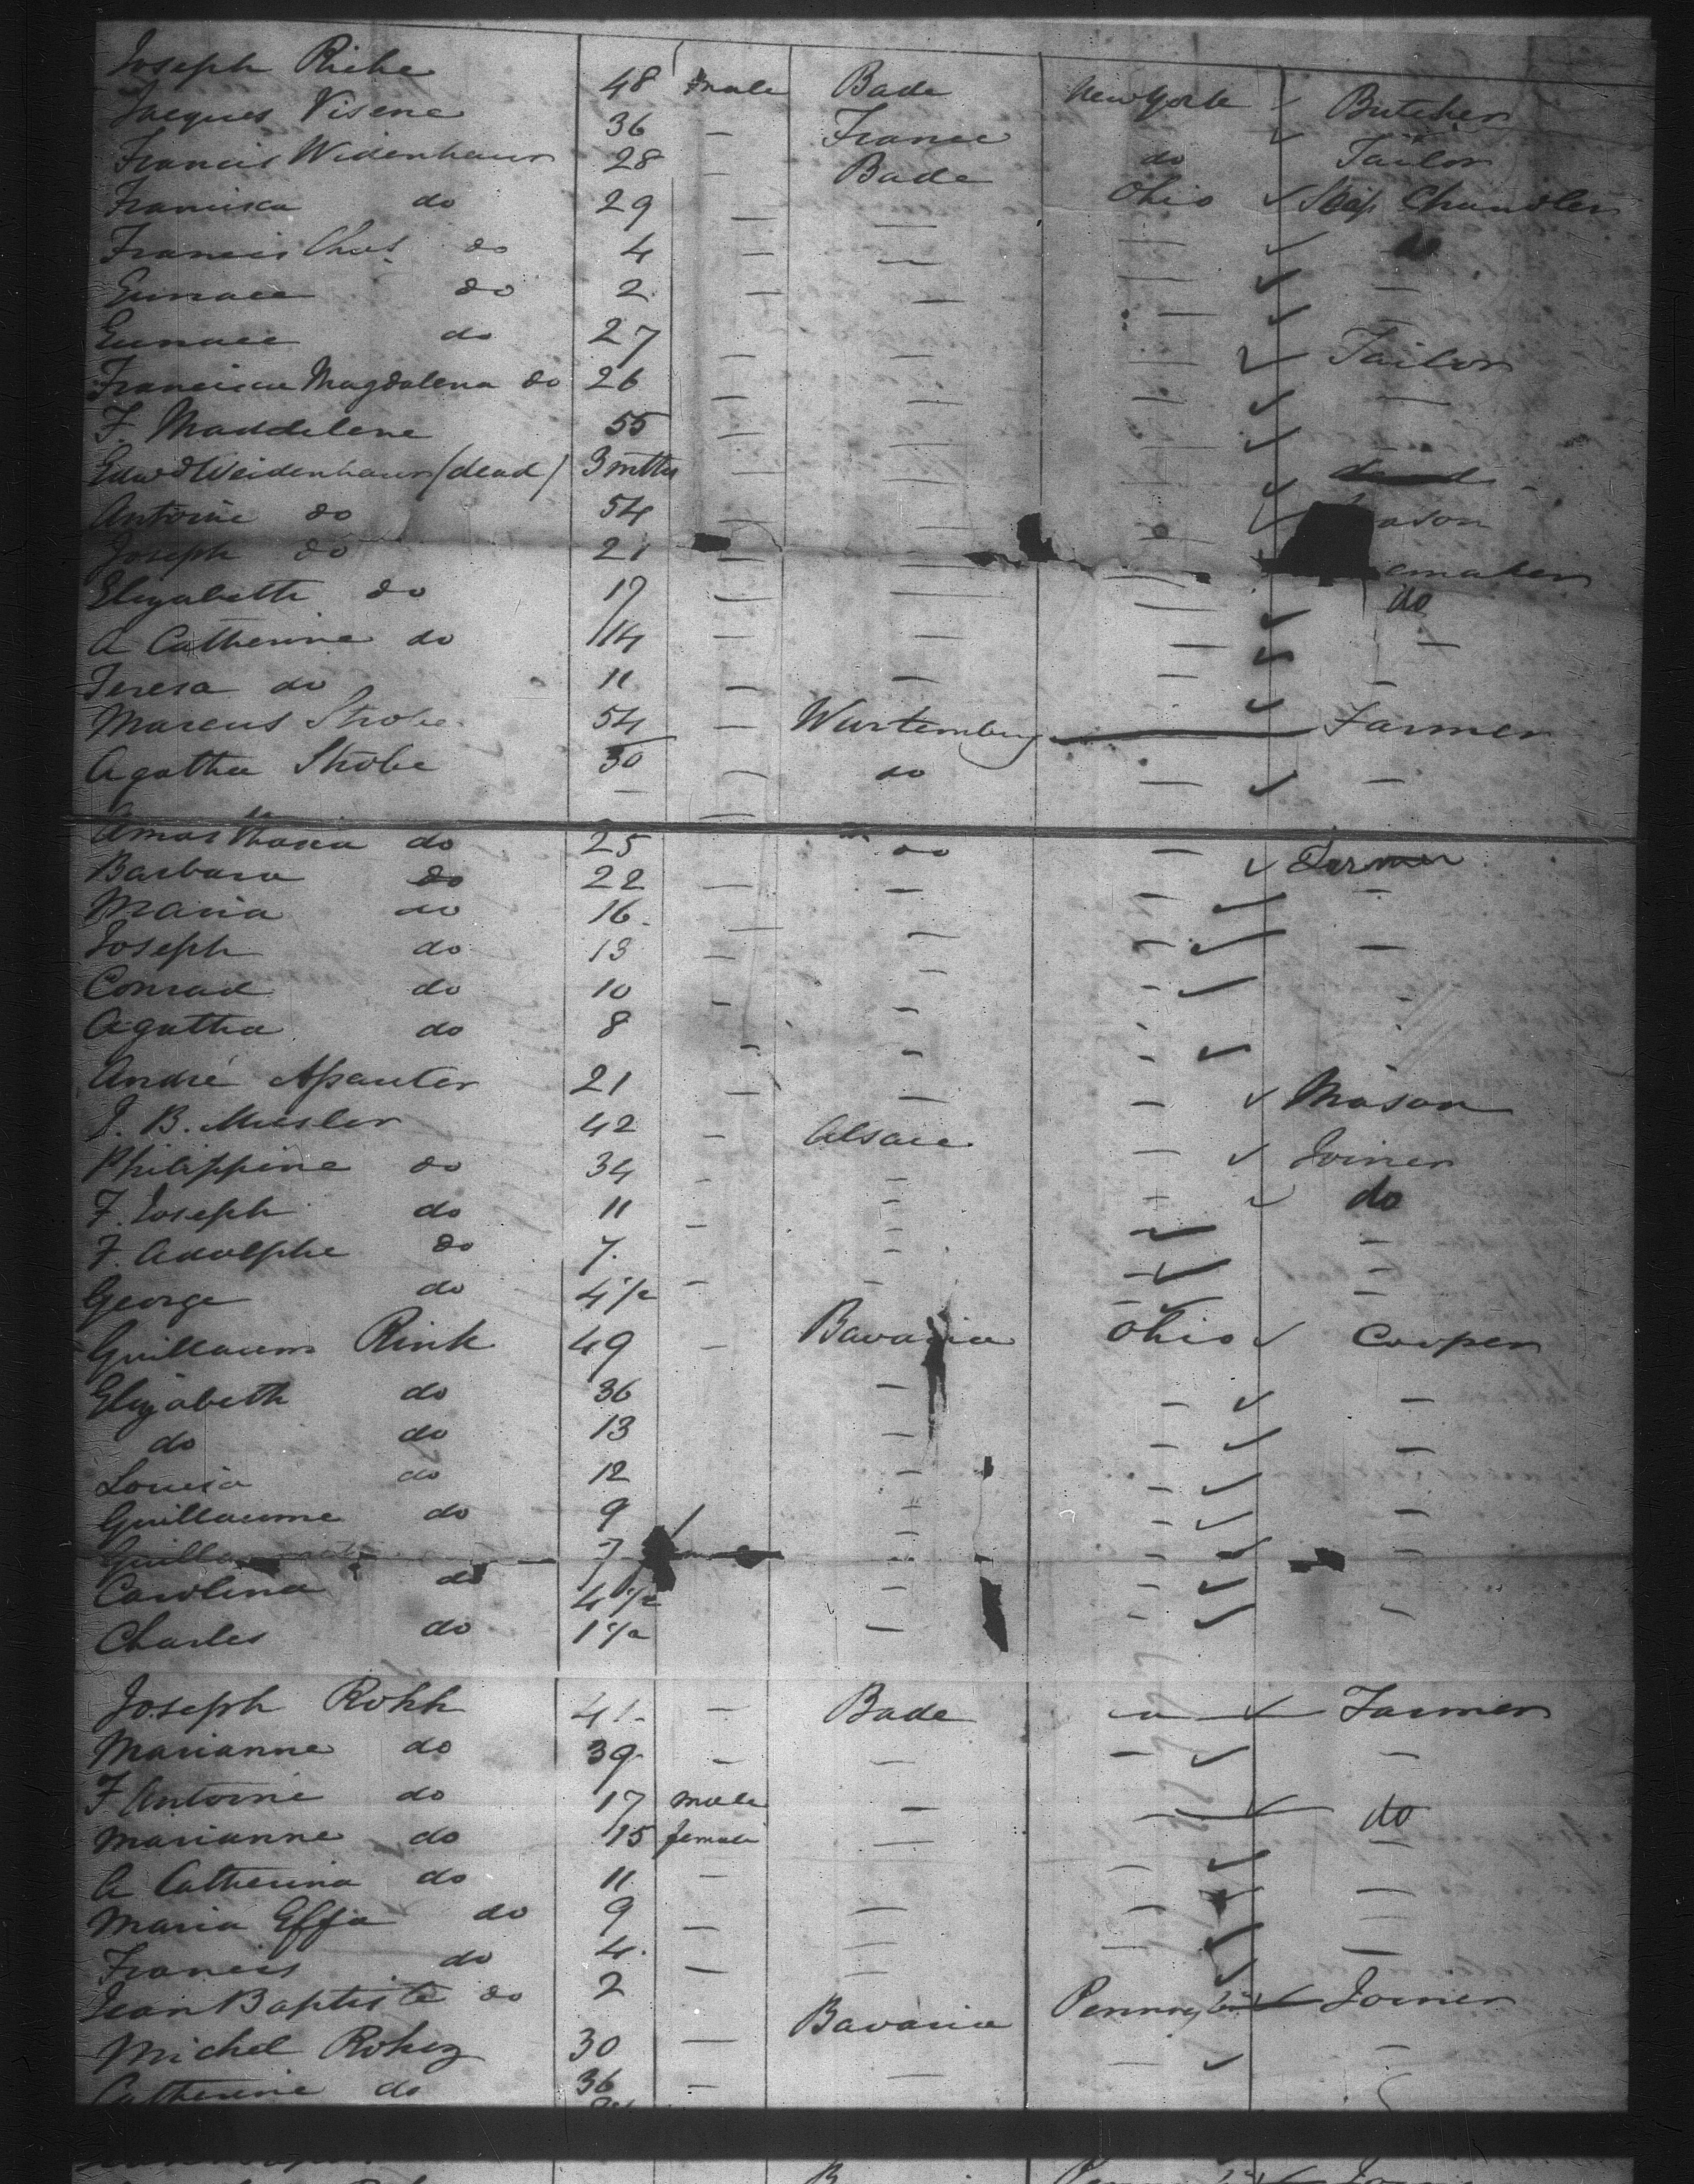 Joseph Riche 48 male Bade New York Butcher
Jacques Visene 36 — France do Tailor
Francis Widenhaur 28 — Bade Ohio Ship Chandler
Francisca do 29 — — — do
Francis Chas. do 4 — — — —
do 2 — — — —
do 27 — — — Tailor
Francisca Magdalena do 26 — — — —
F. Maddelene 55 — — — —
Edwd Weidenhaur (dead) 3 mths — —
Antoine do 54 — — ason
Joseph do 21 — — — emaker
Elizabeth do 17 — — — do
A Catherine do 14 — — — —
Teresa do 11 — — — —
Marcus Strobe 54 — Wurtemburg — Farmer
Agatha Strobe 30 — do — —
do 25 — do — Farmer
Barbara do 22 — — — —
Maria do 16 — — — —
Joseph do 13 — — —
Conrad do 10 — — — -
Agatha do 8 — — —
André 21 — — — Mason
J. B. Miesler 42 — Alsace — Joiner
Philippine do 34 — — — do
F. Joseph do 11 — — — —
F. Adolphe do 7 — — —
George do 4 1/2 — — — —
Guillaume Rink 49 — Bavaria Ohio Cooper
Elizabeth do 36 — — —
do do 13 — — —
Louisa do 12 — —
Guillaume do 9 — — —
7 — — —
Carolina do 4 1/2 — —
Charles do 1 1/2 — — —
Joseph Rohh 41 — Bade — Farmer
Marianne do 39 — — — —
F Antoine do 17 male — — do
Marianne do 15 female — —
A Catherina do 11 — — — —
Maria Effa do 9 — — —
Francis do 4 — — — —
Jean Baptiste do 2
Michel Rohez 30 — Bavaria Joiner
Catherine do 36 — — — —